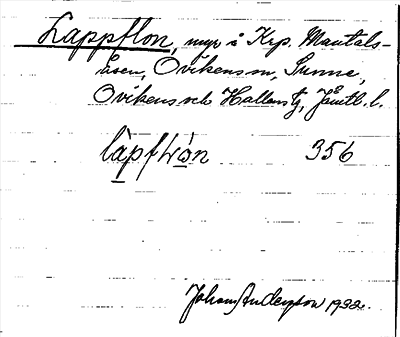 Lappflon, myr å Krp. Mantals-
åsen, Ovikens sn, Sunne,
Ovikens och Hallens tg, Jämtl. l.
làpfɫòn 356
Johan Anderson 1932.